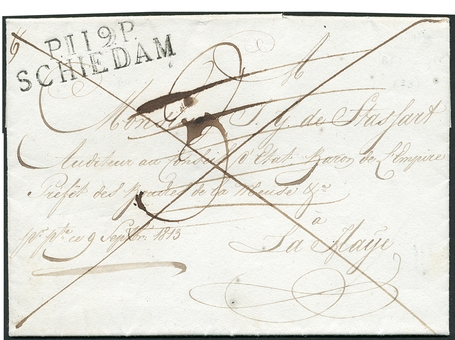 P.119.P.
SCHIEDAM
A
Monsieur J. G. de Stassart
Auditeur au Conseil d'Etat Baron de l'Empire
Préfet des Bouches de la Meuse &a
à
pr. pte. ce 9 Septbr. 1813
La Haÿe